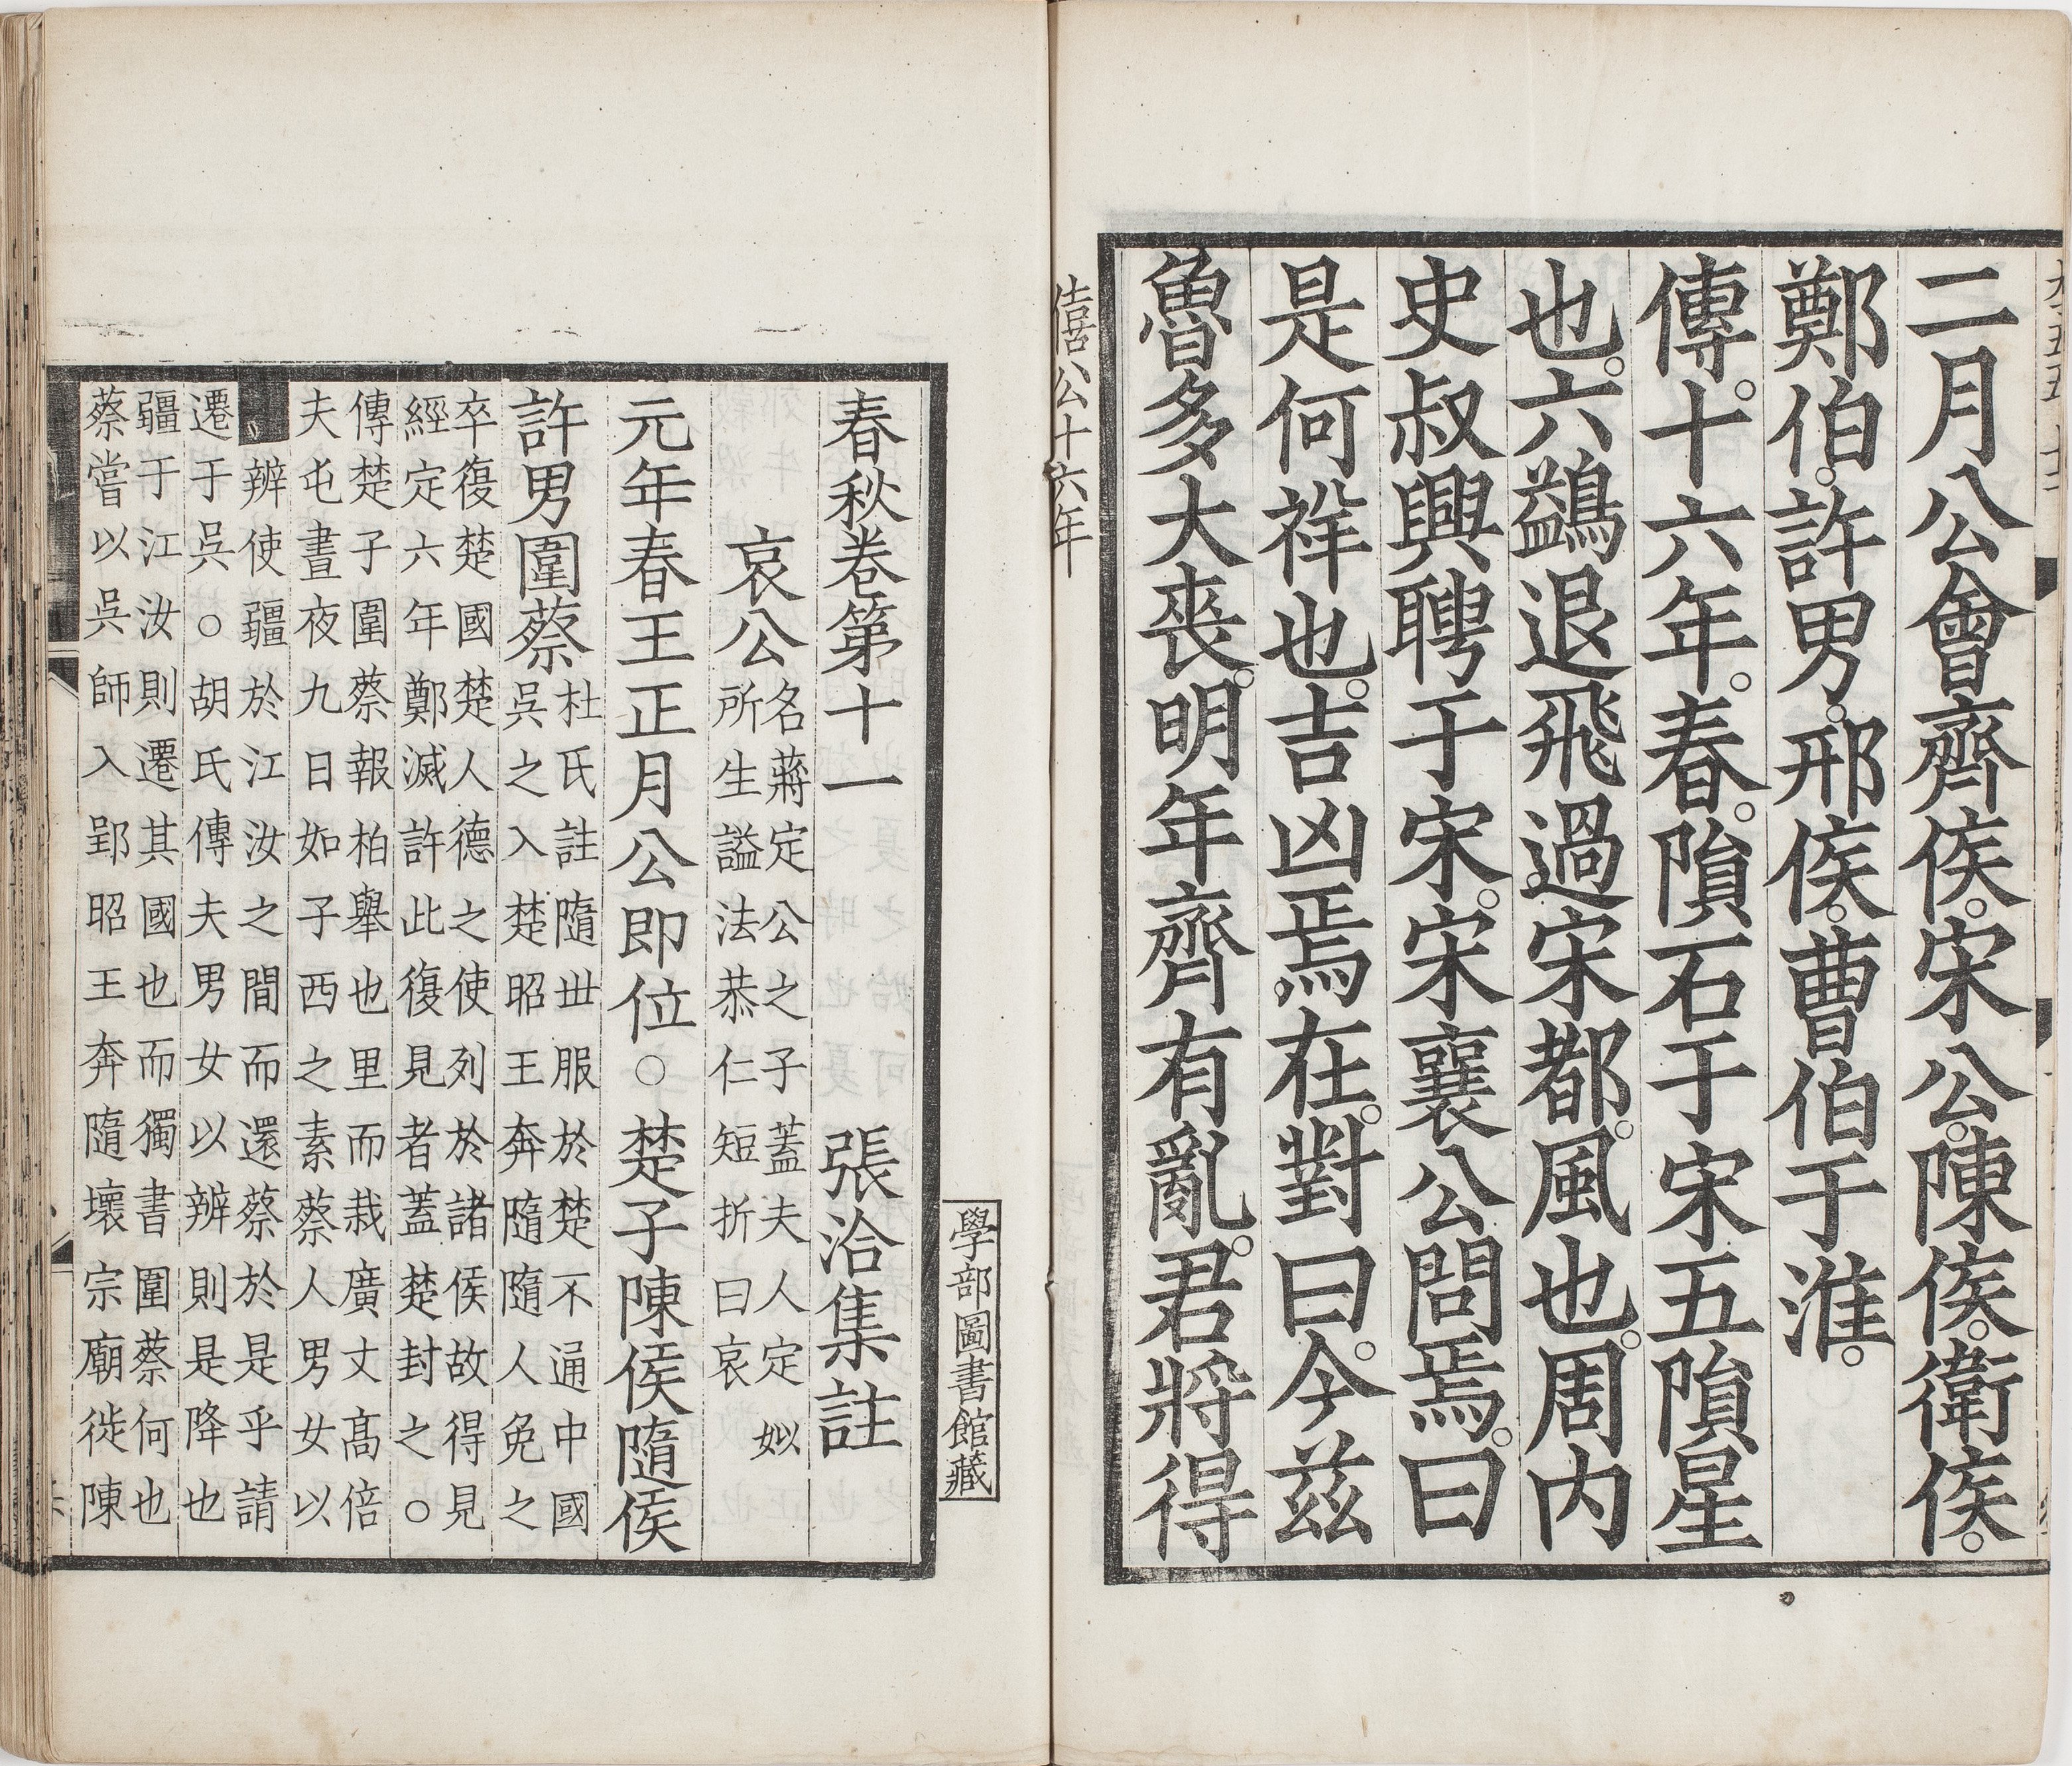 二月公會齊侯宋公陳侯衛侯
鄭伯許男邢侯曹伯于淮
傳十六年春隕石于宋五隕星
也六鷁退飛過宋都風也周内
史叔興聘于宋宋襄公問焉曰
是何祥也吉凶焉在對曰今兹
魯多大喪明年齊有亂君將得
僖公十六年
學部圖書館藏
春秋卷第十一 張洽集註
哀公
名蔣定公之子蓋夫人定姒
所生謚法恭仁短折曰哀
元年春王正月公即位○楚子陳侯隨侯
許男圍蔡
杜氏註隨世服於楚不通中國
吳之入楚昭王奔隨隨人免之
卒復楚國楚人德之使列於諸侯故得見
經定六年鄭滅許此復見者蓋楚封之○
傳楚子圍蔡報柏舉也里而栽廣丈高倍
夫屯晝夜九日如子西之素蔡人男女以
辨使疆於江汝之間而還蔡於是乎請
遷于吳○胡氏傳夫男女以辨則是降也
疆于江汝則遷其國也而獨書圍蔡何也
蔡嘗以吳師入郢昭王奔隨壞宗廟徙陳